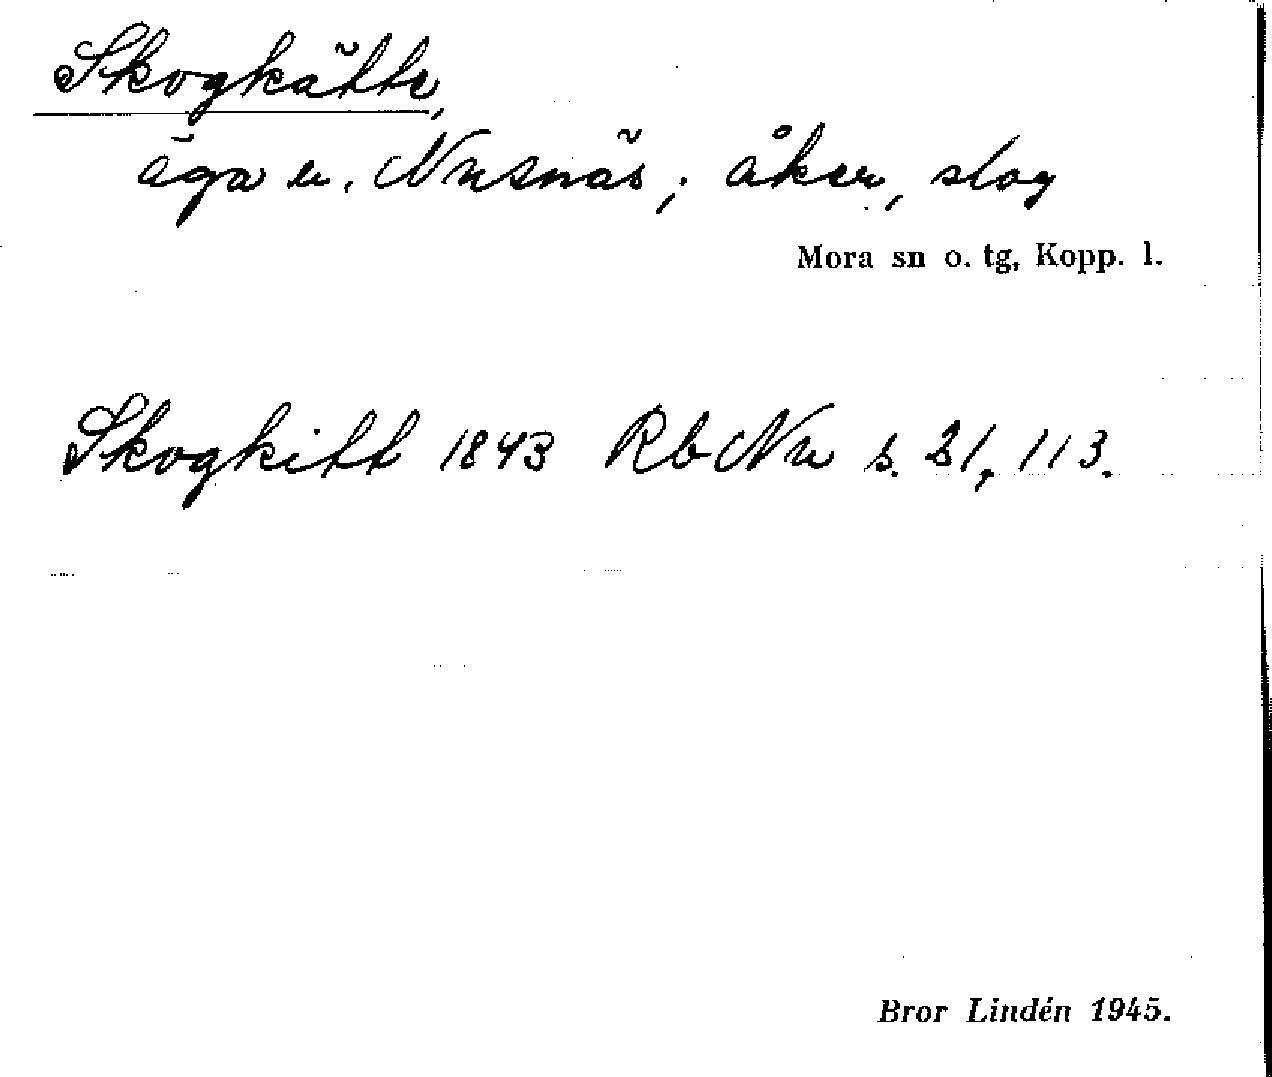 Skogkätte,
äga u. Nusnäs; åker, slog
Mora sn o. tg, Kopp. l.
Skogkitt 1843 Rb Nu s. 21, 113.
Bror Lindén 1945.